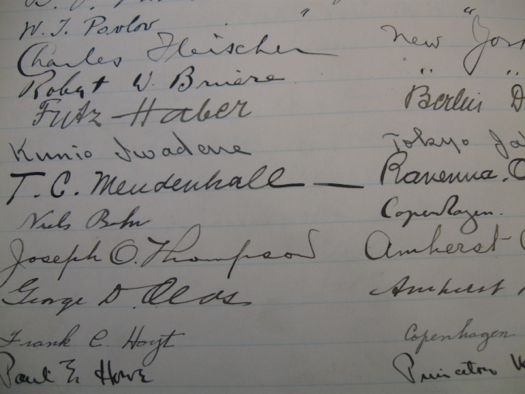 W. T. Pavlov "
Charles Fleischer New York
Robert W. Bruère " "
Fritz Haber Berlin D
Kunio Iwadare Tokyo Ja
T. C. Mendenhall — Ravenna. O
Niels Bohr Copenhagen.
Joseph O. Thompson Amherst
George D. Olds Amherst
Frank C. Hoyt Copenhagen
Paul E. Howe Princeton